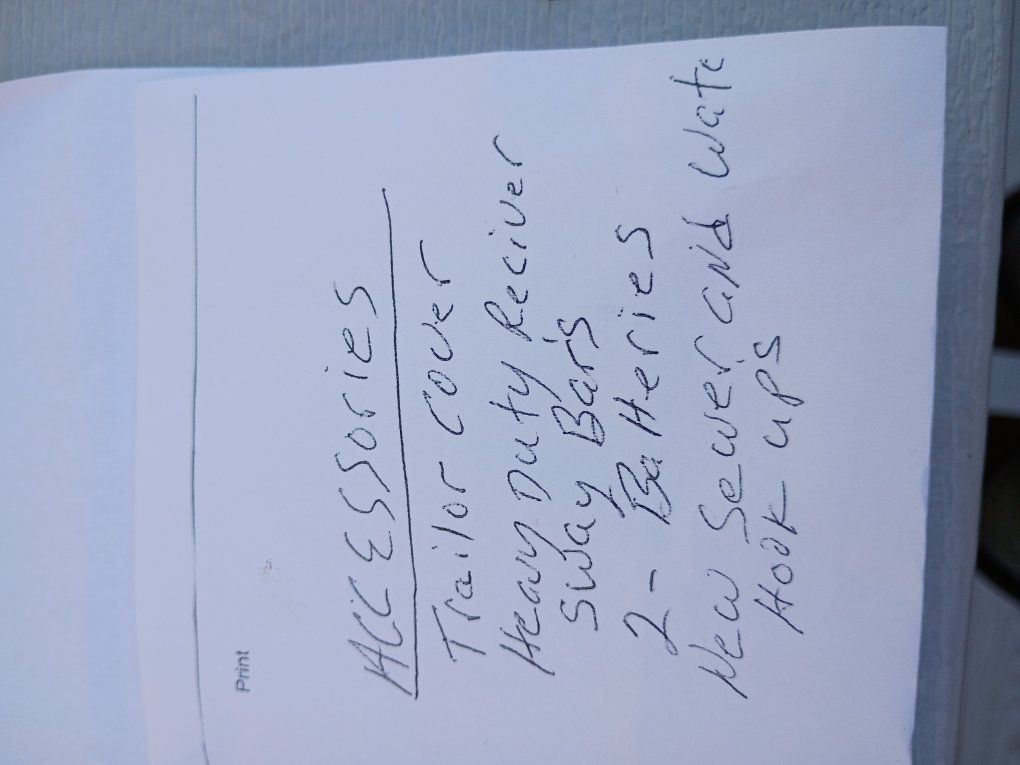 Print
ACCESSORIES
Trailor cover
Heavy Duty Reciver
Sway Bars
2- Batteries
New Sewer and Wate
Hook ups